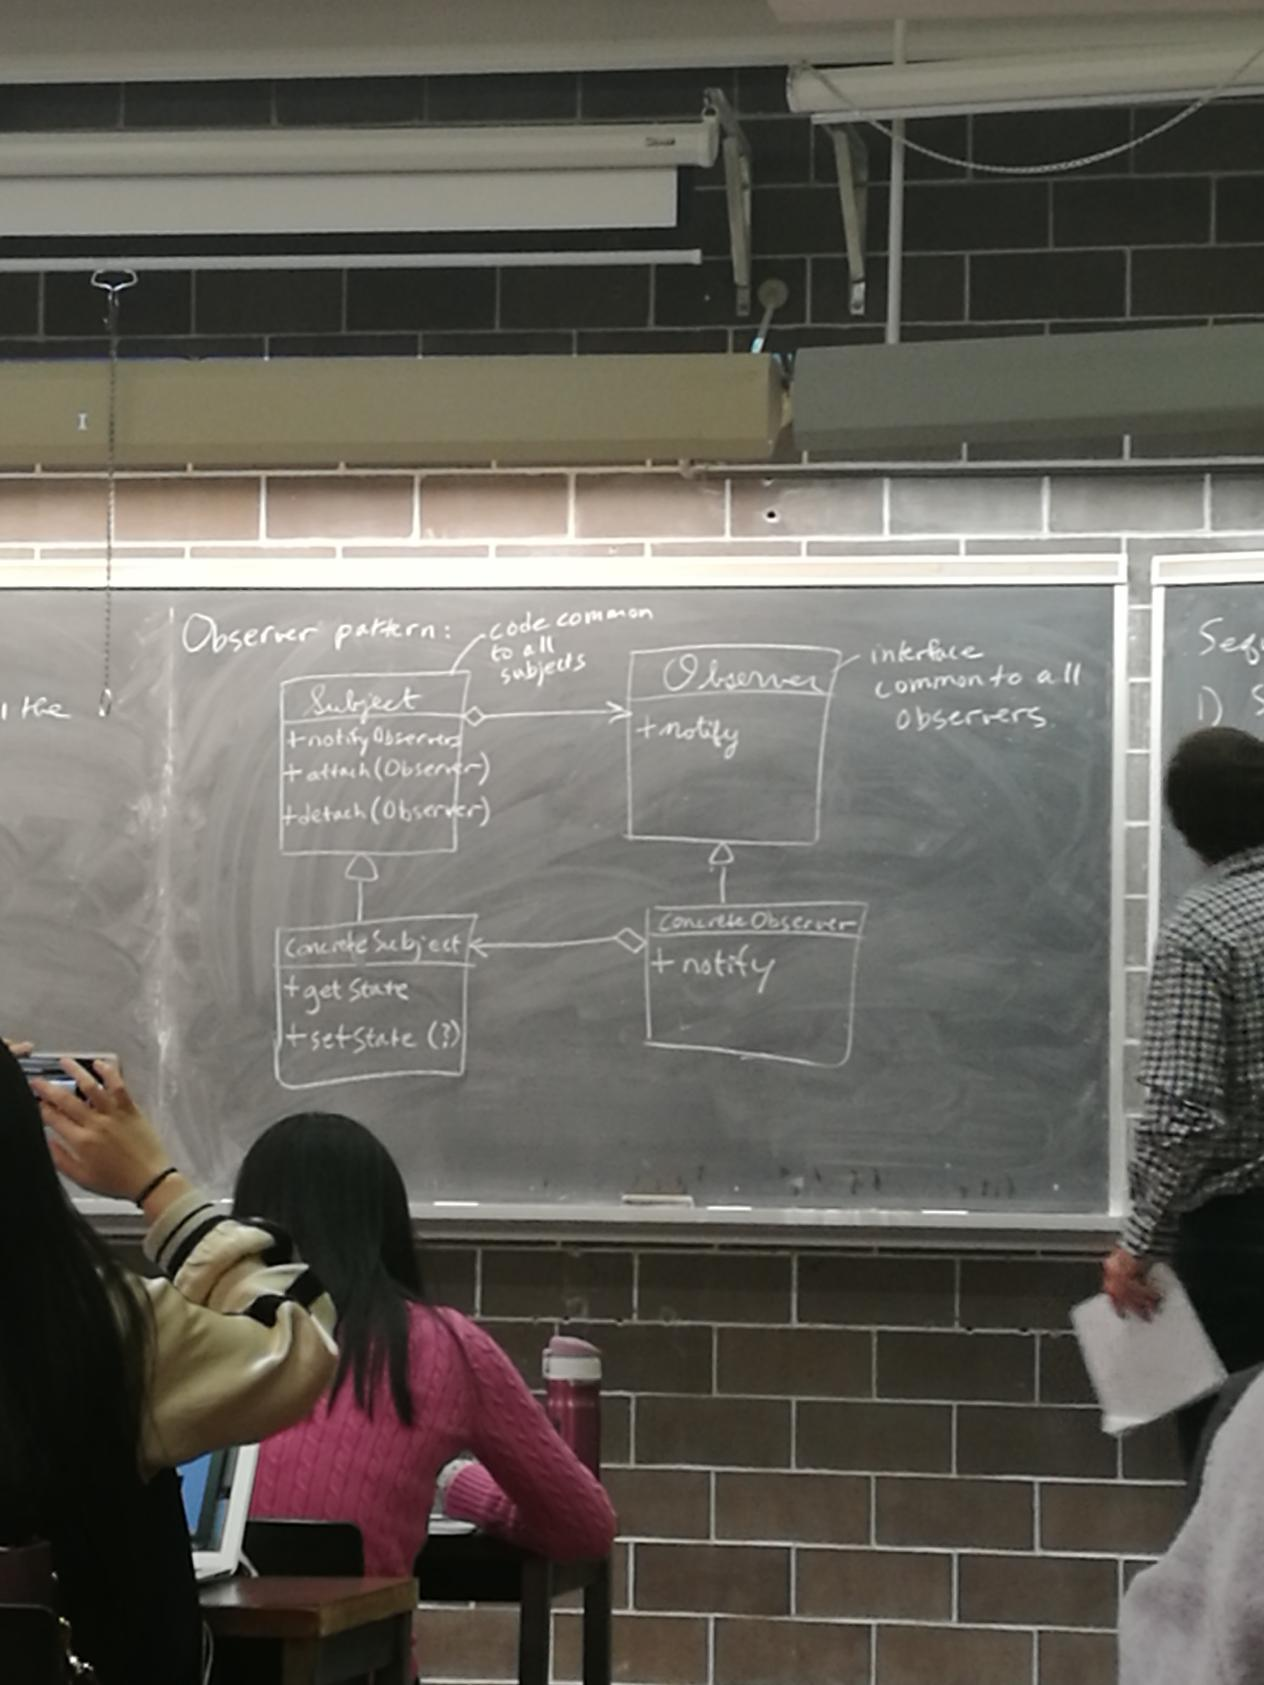 l the
Observer pattern:
code common
to all
subjects
Subject
+notifyObservers
+attach(Observer)
+detach(Observer)
Observer
+notify
interface
common to all
observers.
ConcreteSubject
+getState
+setState (?)
ConcreteObserver
+ notify
Sequ
1) S